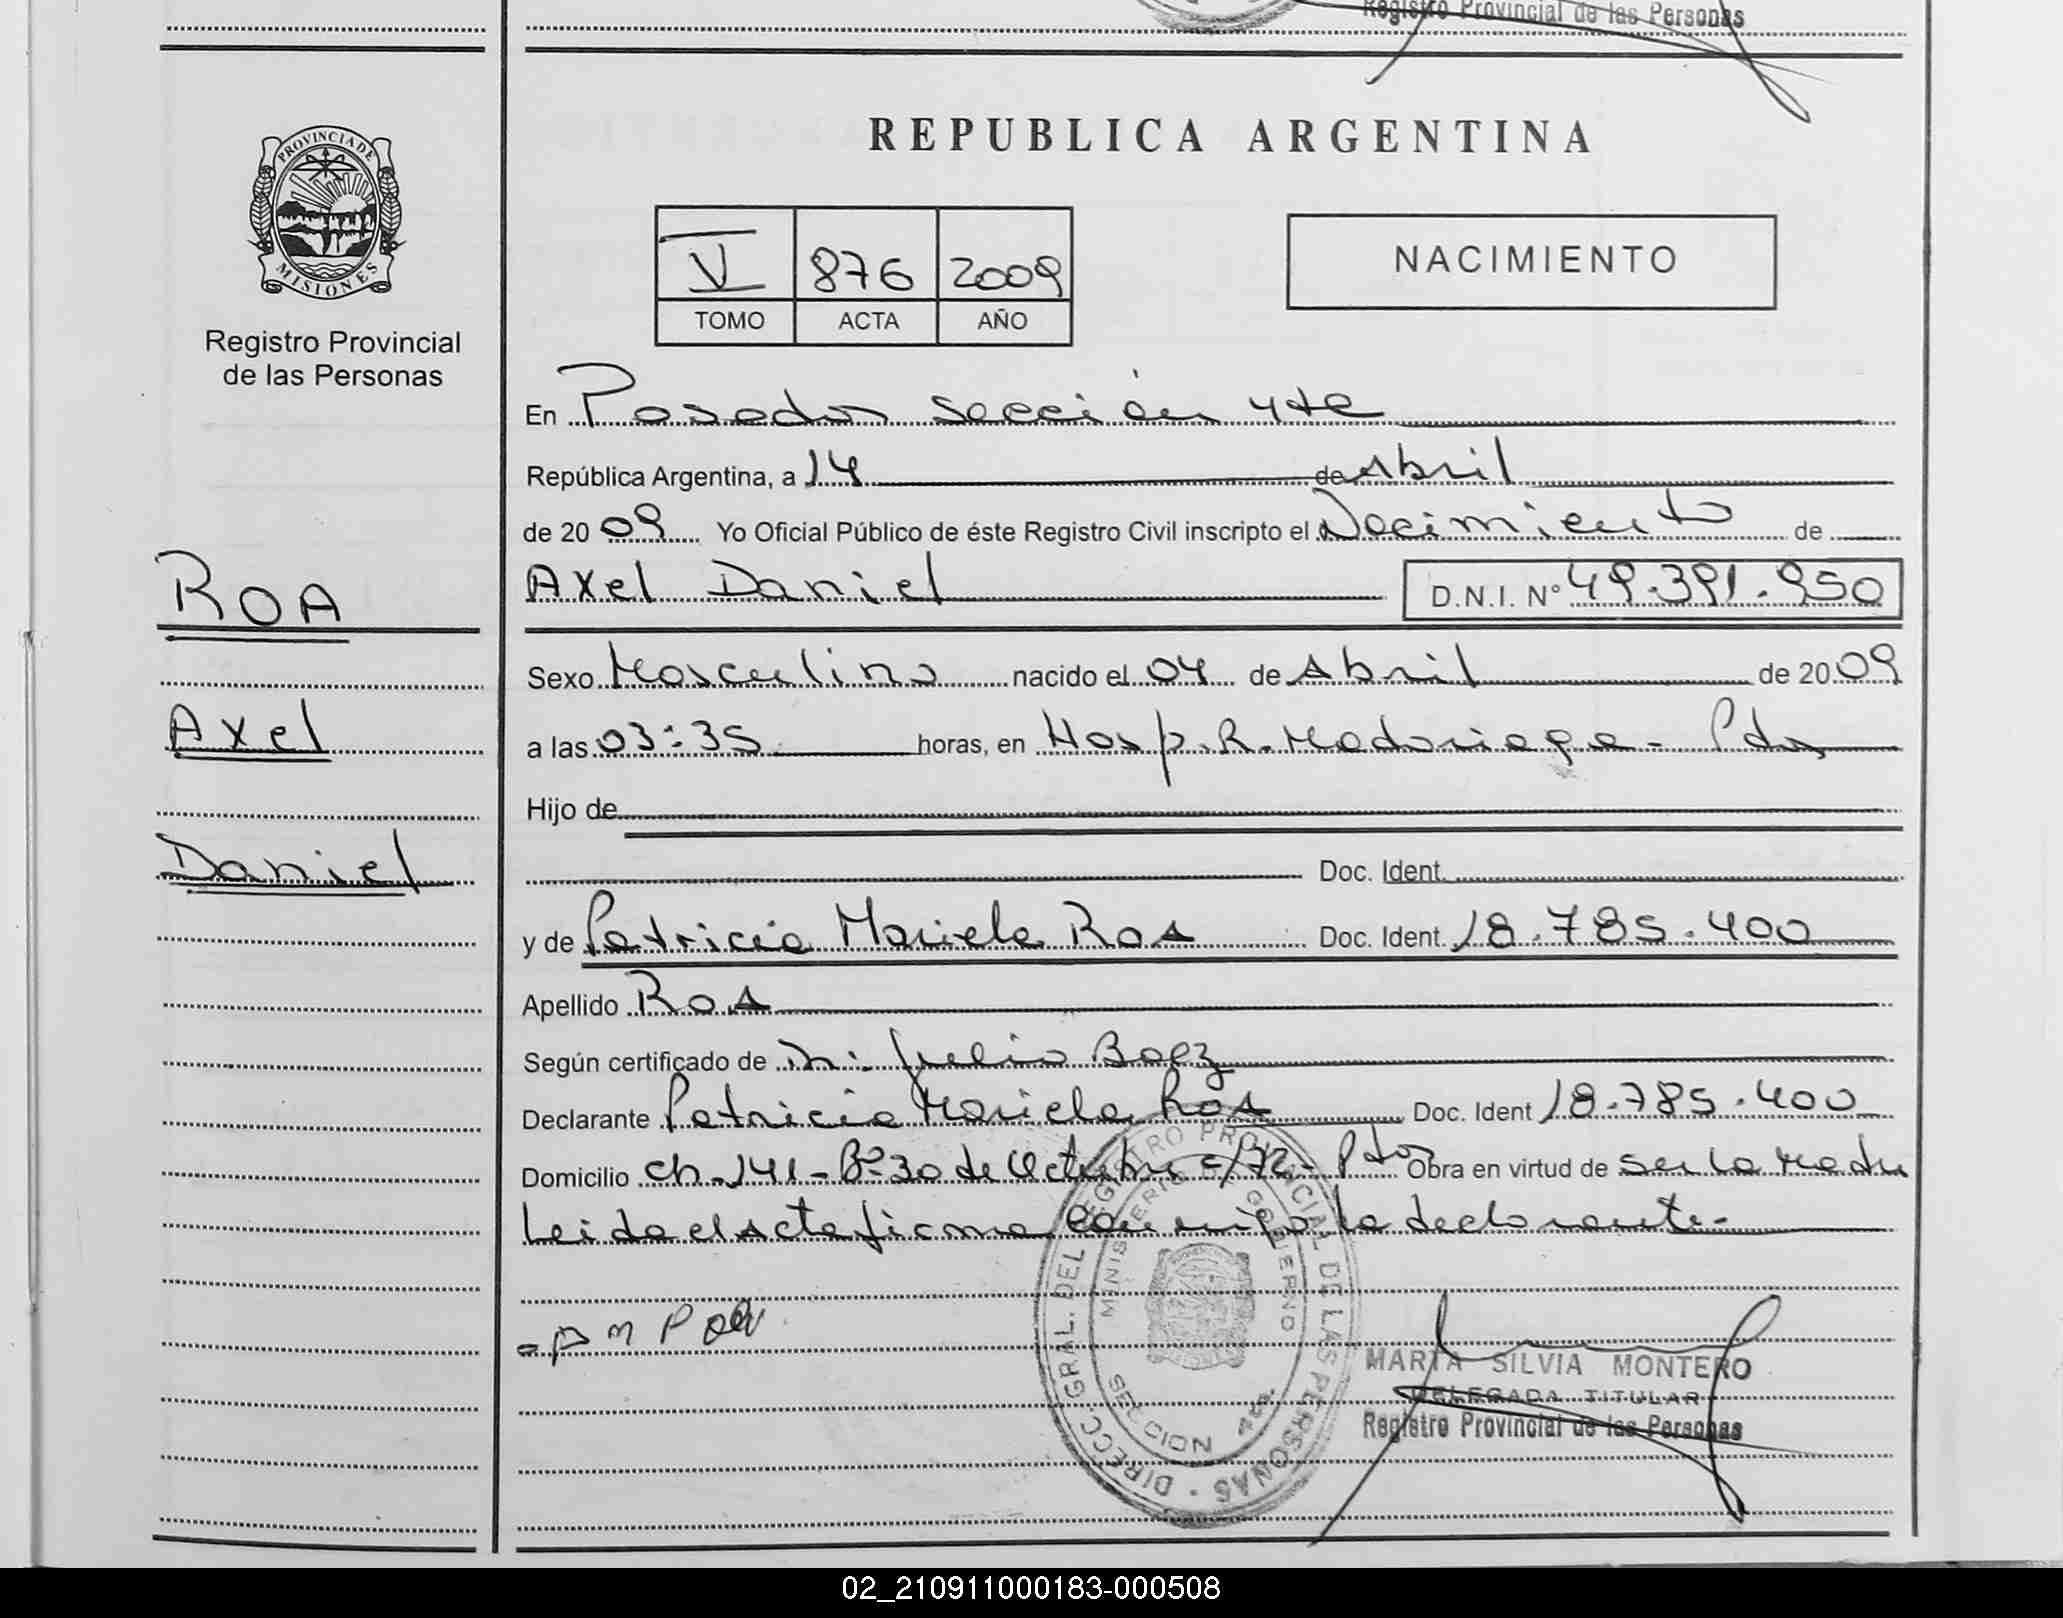 Registro Provincial de las Personas
PROVINCIA DE
MISIONES
Registro Provincial
de las Personas
ROA
Axel
Daniel
REPUBLICA ARGENTINA
V 876 2009
TOMO ACTA AÑO
NACIMIENTO
En Posadas sección 4ta
República Argentina, a 14 de Abril
de 2009 Yo Oficial Público de éste Registro Civil inscripto el Nacimiento de
Axel Daniel D.N.I. N° 49.391.950
Sexo Masculino nacido el 04 de Abril de 2009
a las 03:35 horas, en Hosp. R. Madariaga - Pdas
Hijo de
Doc. Ident.
y de Patricia Mariela Roa Doc. Ident. 18.785.400
Apellido Roa
Según certificado de Dr: Julio Baez
Declarante Patricia Mariela Roa Doc. Ident 18.785.400
Domicilio Ch. 141 - B° 30 de Octubre c/72 - Pdas Obra en virtud de ser la Madre
Leida el Acta firma conmigo la declarante-
DIRECC. GRAL. DEL REGISTRO PROVINCIAL DE LAS PERSONAS
MINISTERIO DE GOBIERNO
SECCION 4ta.
MARTA SILVIA MONTERO
DELEGADA TITULAR
Registro Provincial de las Personas
02_210911000183-000508